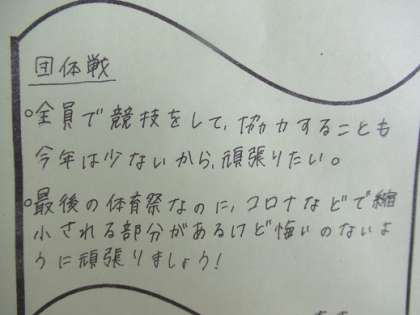 団体戦
○全員で競技をして、協力することも
今年は少ないから、頑張りたい。
○最後の体育祭なのに、コロナなどで縮
小される部分があるけど悔いのないよ
うに頑張りましょう!